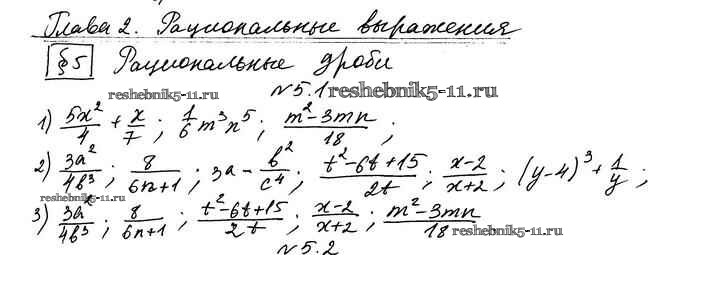 Глава 2. Рациональные выражения
§5 Рациональные дроби
№5.1 reshebnik5-11.ru
reshebnik5-11.ru
1) 5x²/4 + x/7; 1/6 m³n⁵; (m²-3mn)/18;
2) 3a²/4b³; 8/(6n+1); 3a - b²/c⁴; (t²-6t+15)/2t; (x-2)/(x+2); (y-4)³ + 1/y;
reshebnik5-11.ru
3) 3a²/4b³; 8/(6n+1); (t²-6t+15)/2t; (x-2)/(x+2); (m²-3mn)/18
reshebnik5-11.ru
№5.2